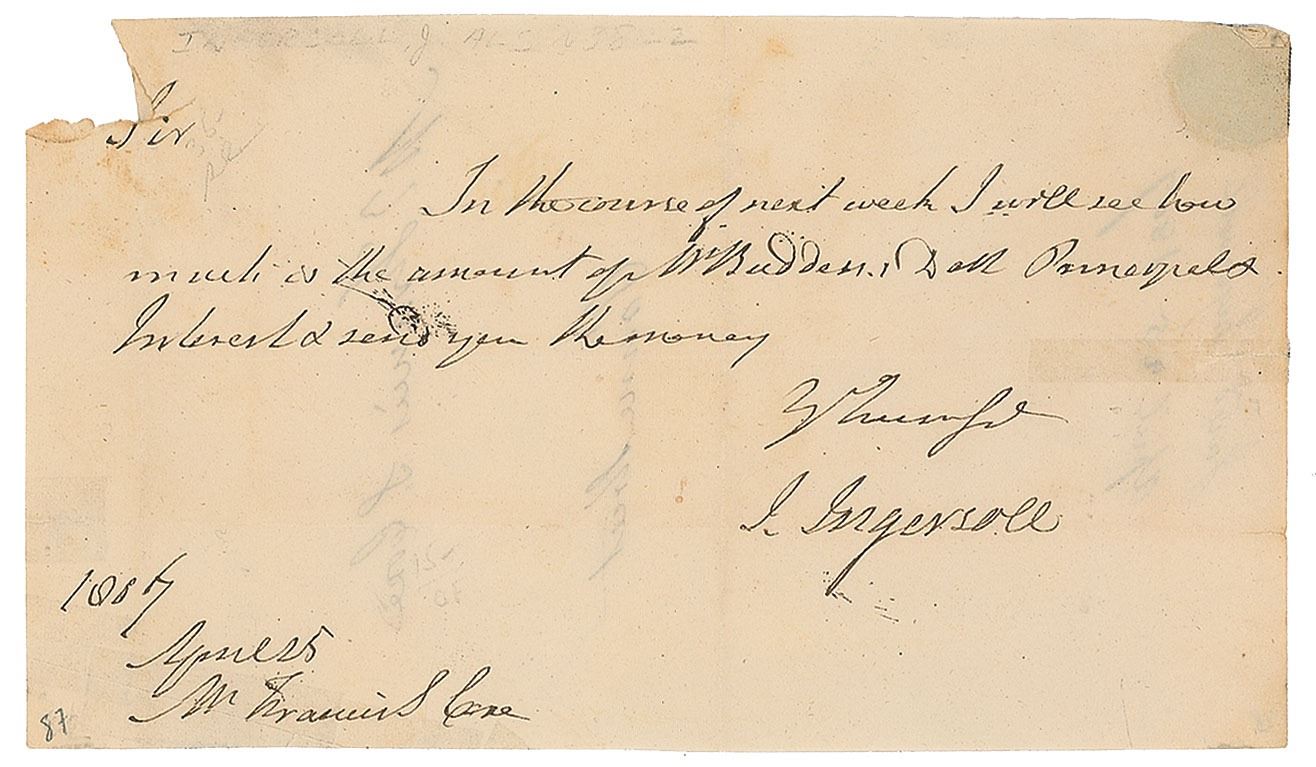 Sir
In the course of next week I will see how
much is the amount of Mr Buddens Debt Principal &
Interest & send you the money
J. Ingersoll
1807
April 25
Mr Francis Coxe
87